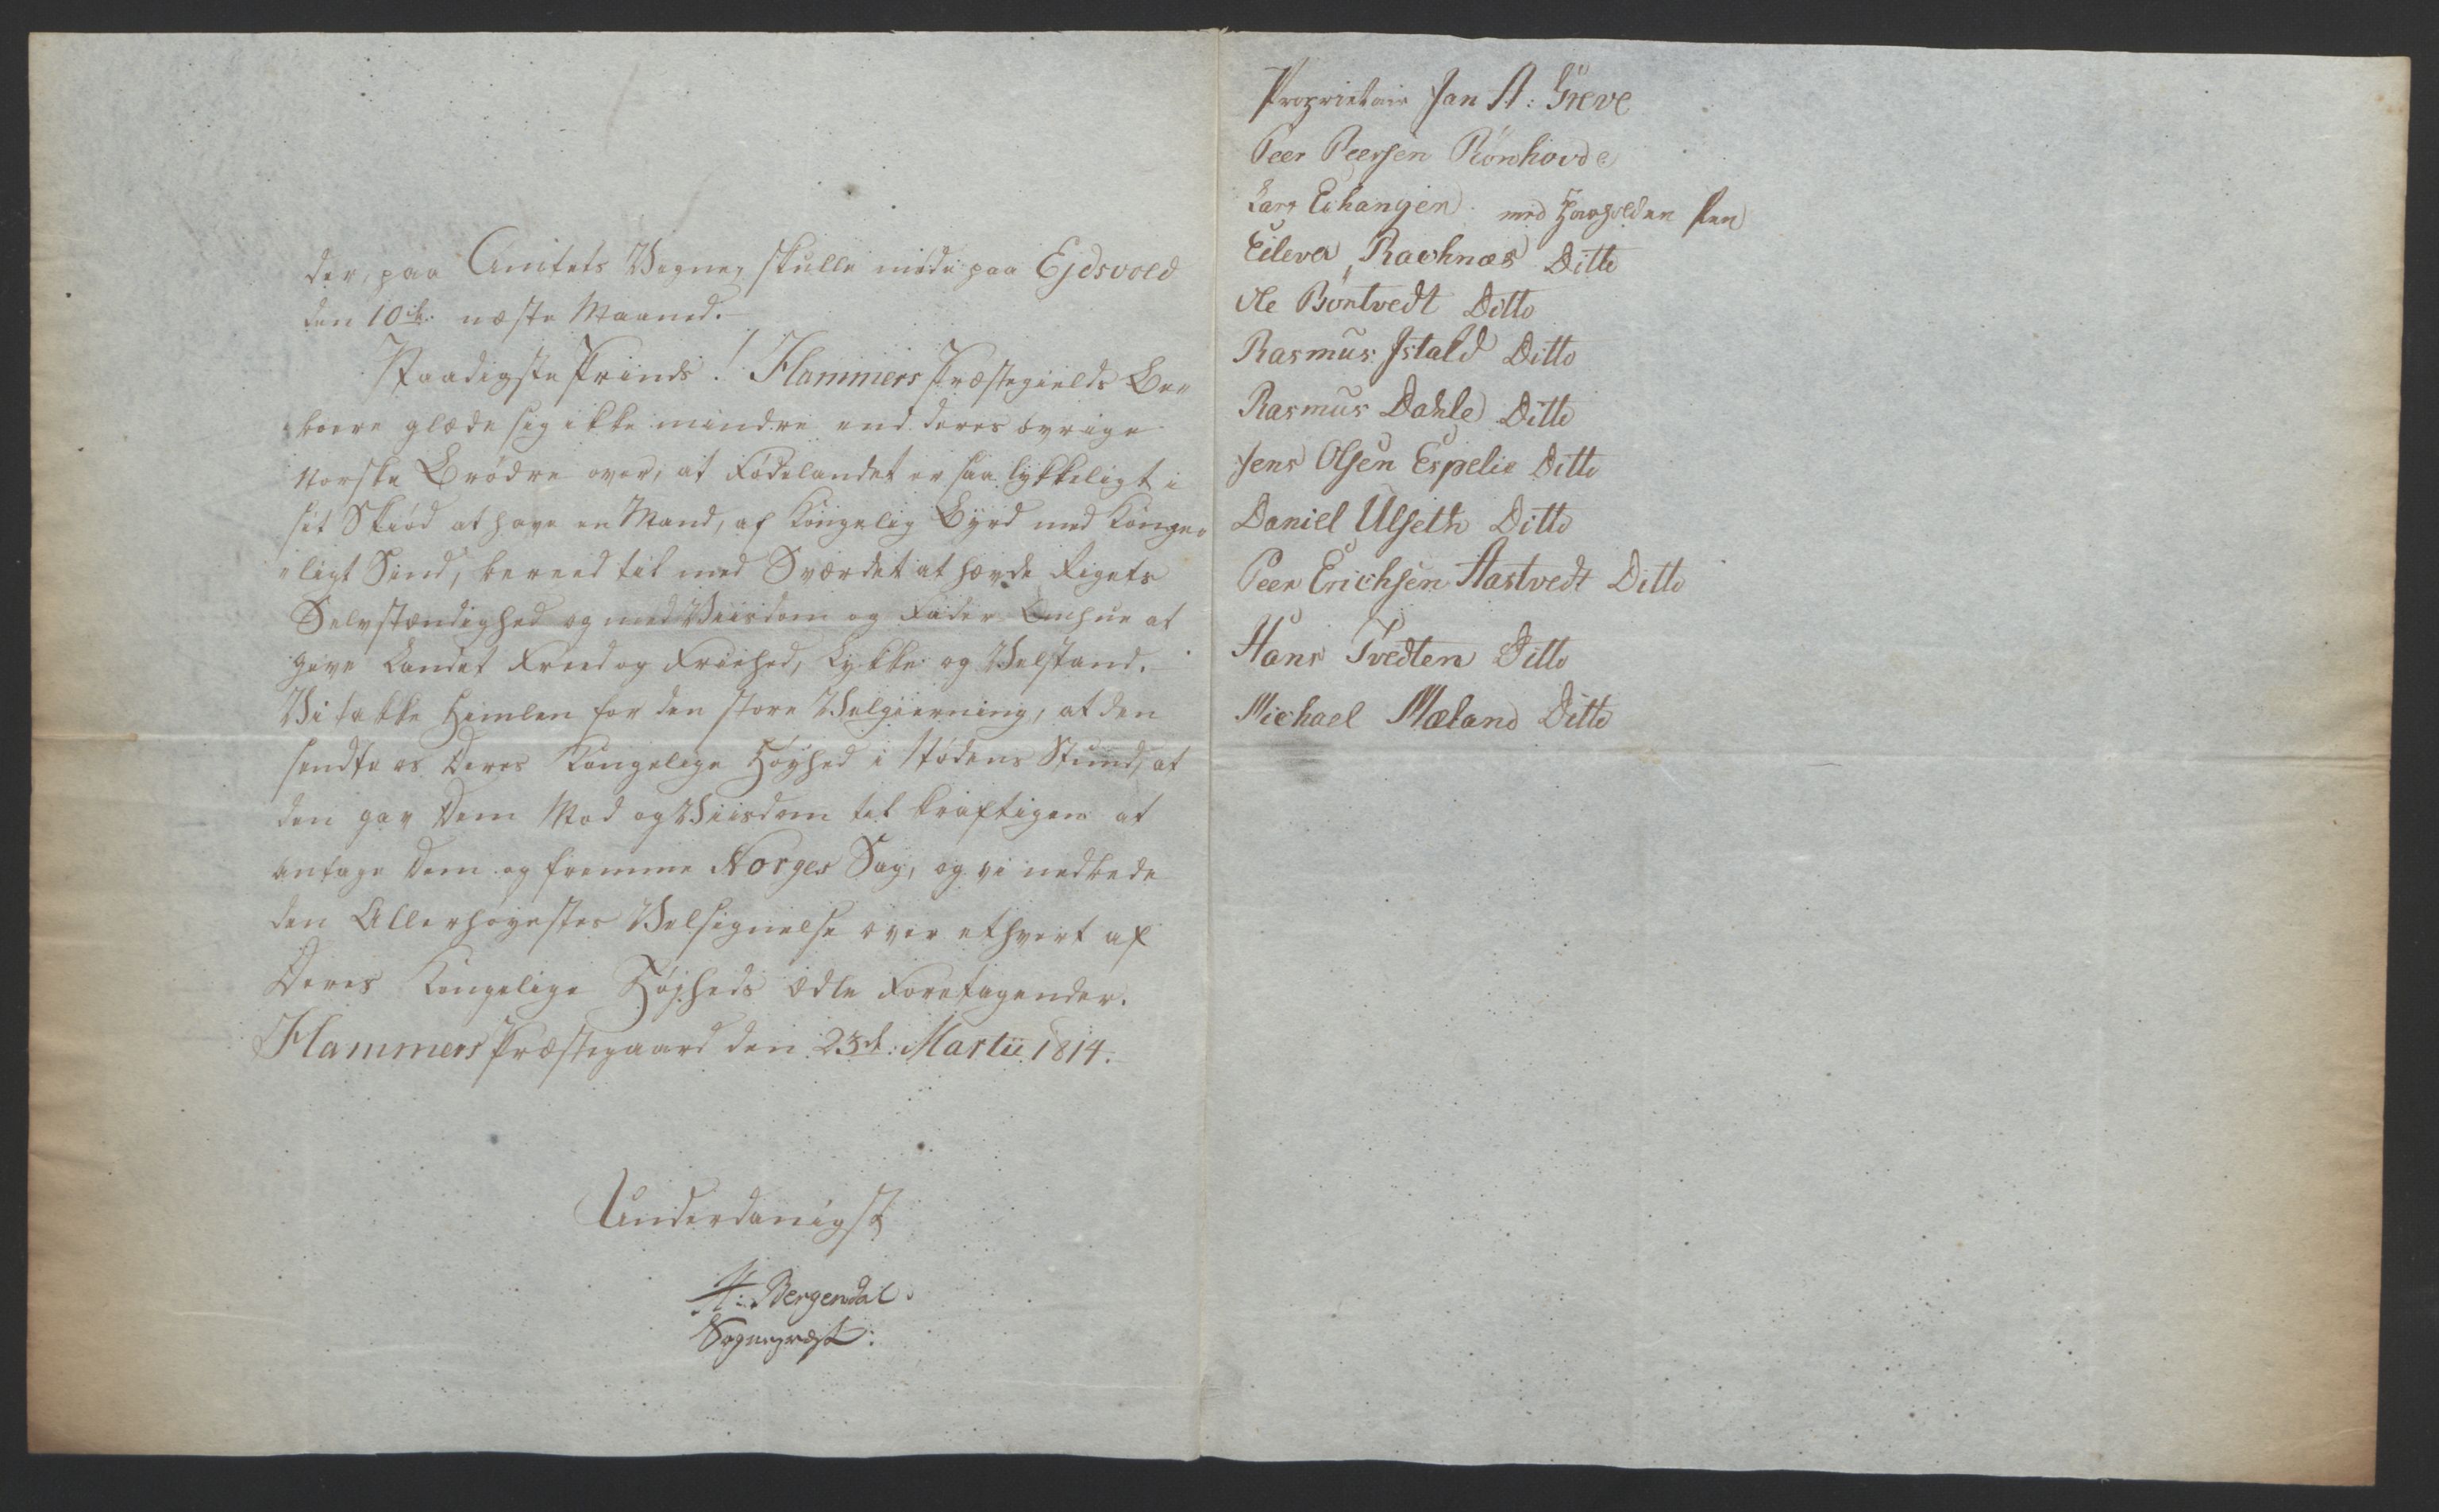 der, paa Amtets Vegne, skulle møde paa Ejdsvold
den 10de næste Maaned.
Naadigste Prinds! Hammers Præstegields Be-
boere glæde sig ikke mindre end deres øvrige
Norske Brødre over, at Fødelandet er saa lykkeligt i
sit Skiød at have en Mand, af Kongelig Byrd med Konge-
ligt Sind, bereed til med Sværdet at hævde Rigets
Selvstændighed og med Viisdom og Fader Omhue at
give Landet Freed og Friehed, Lykke og Velstand.
Vi takke Himlen for den store Velgierning, at den
sendte os Deres Kongelige Høyhed i Nødens Stund, at
den gav Dem Mod og Viisdom til kraftigen at
antage Dem og fremme Norges Sag, og vi nedbede
den Allerhøyestes Velsignelse over ethvert af
Deres Kongelige Højheds ædle Foretagender.
Hammers Præstegaard den 23d: Martii 1814.
Underdanigst
A: Bergendal.
Sognepræst.
Proprietair Jan A: Greve
Peer Peersen Rönhovde
Lars Echangen med Haandholden Pen
Eilever Ravhnæs Ditto
Ole Börtvedt Ditto
Rasmus Jstald Ditto
Rasmus Dahle Ditto
Jens Olsen Espelie Ditto
Daniel Ulseth Ditto
Peer Erichsen Aastvedt Ditto
Hans Tvedten Ditto
Michael Mæland Ditto